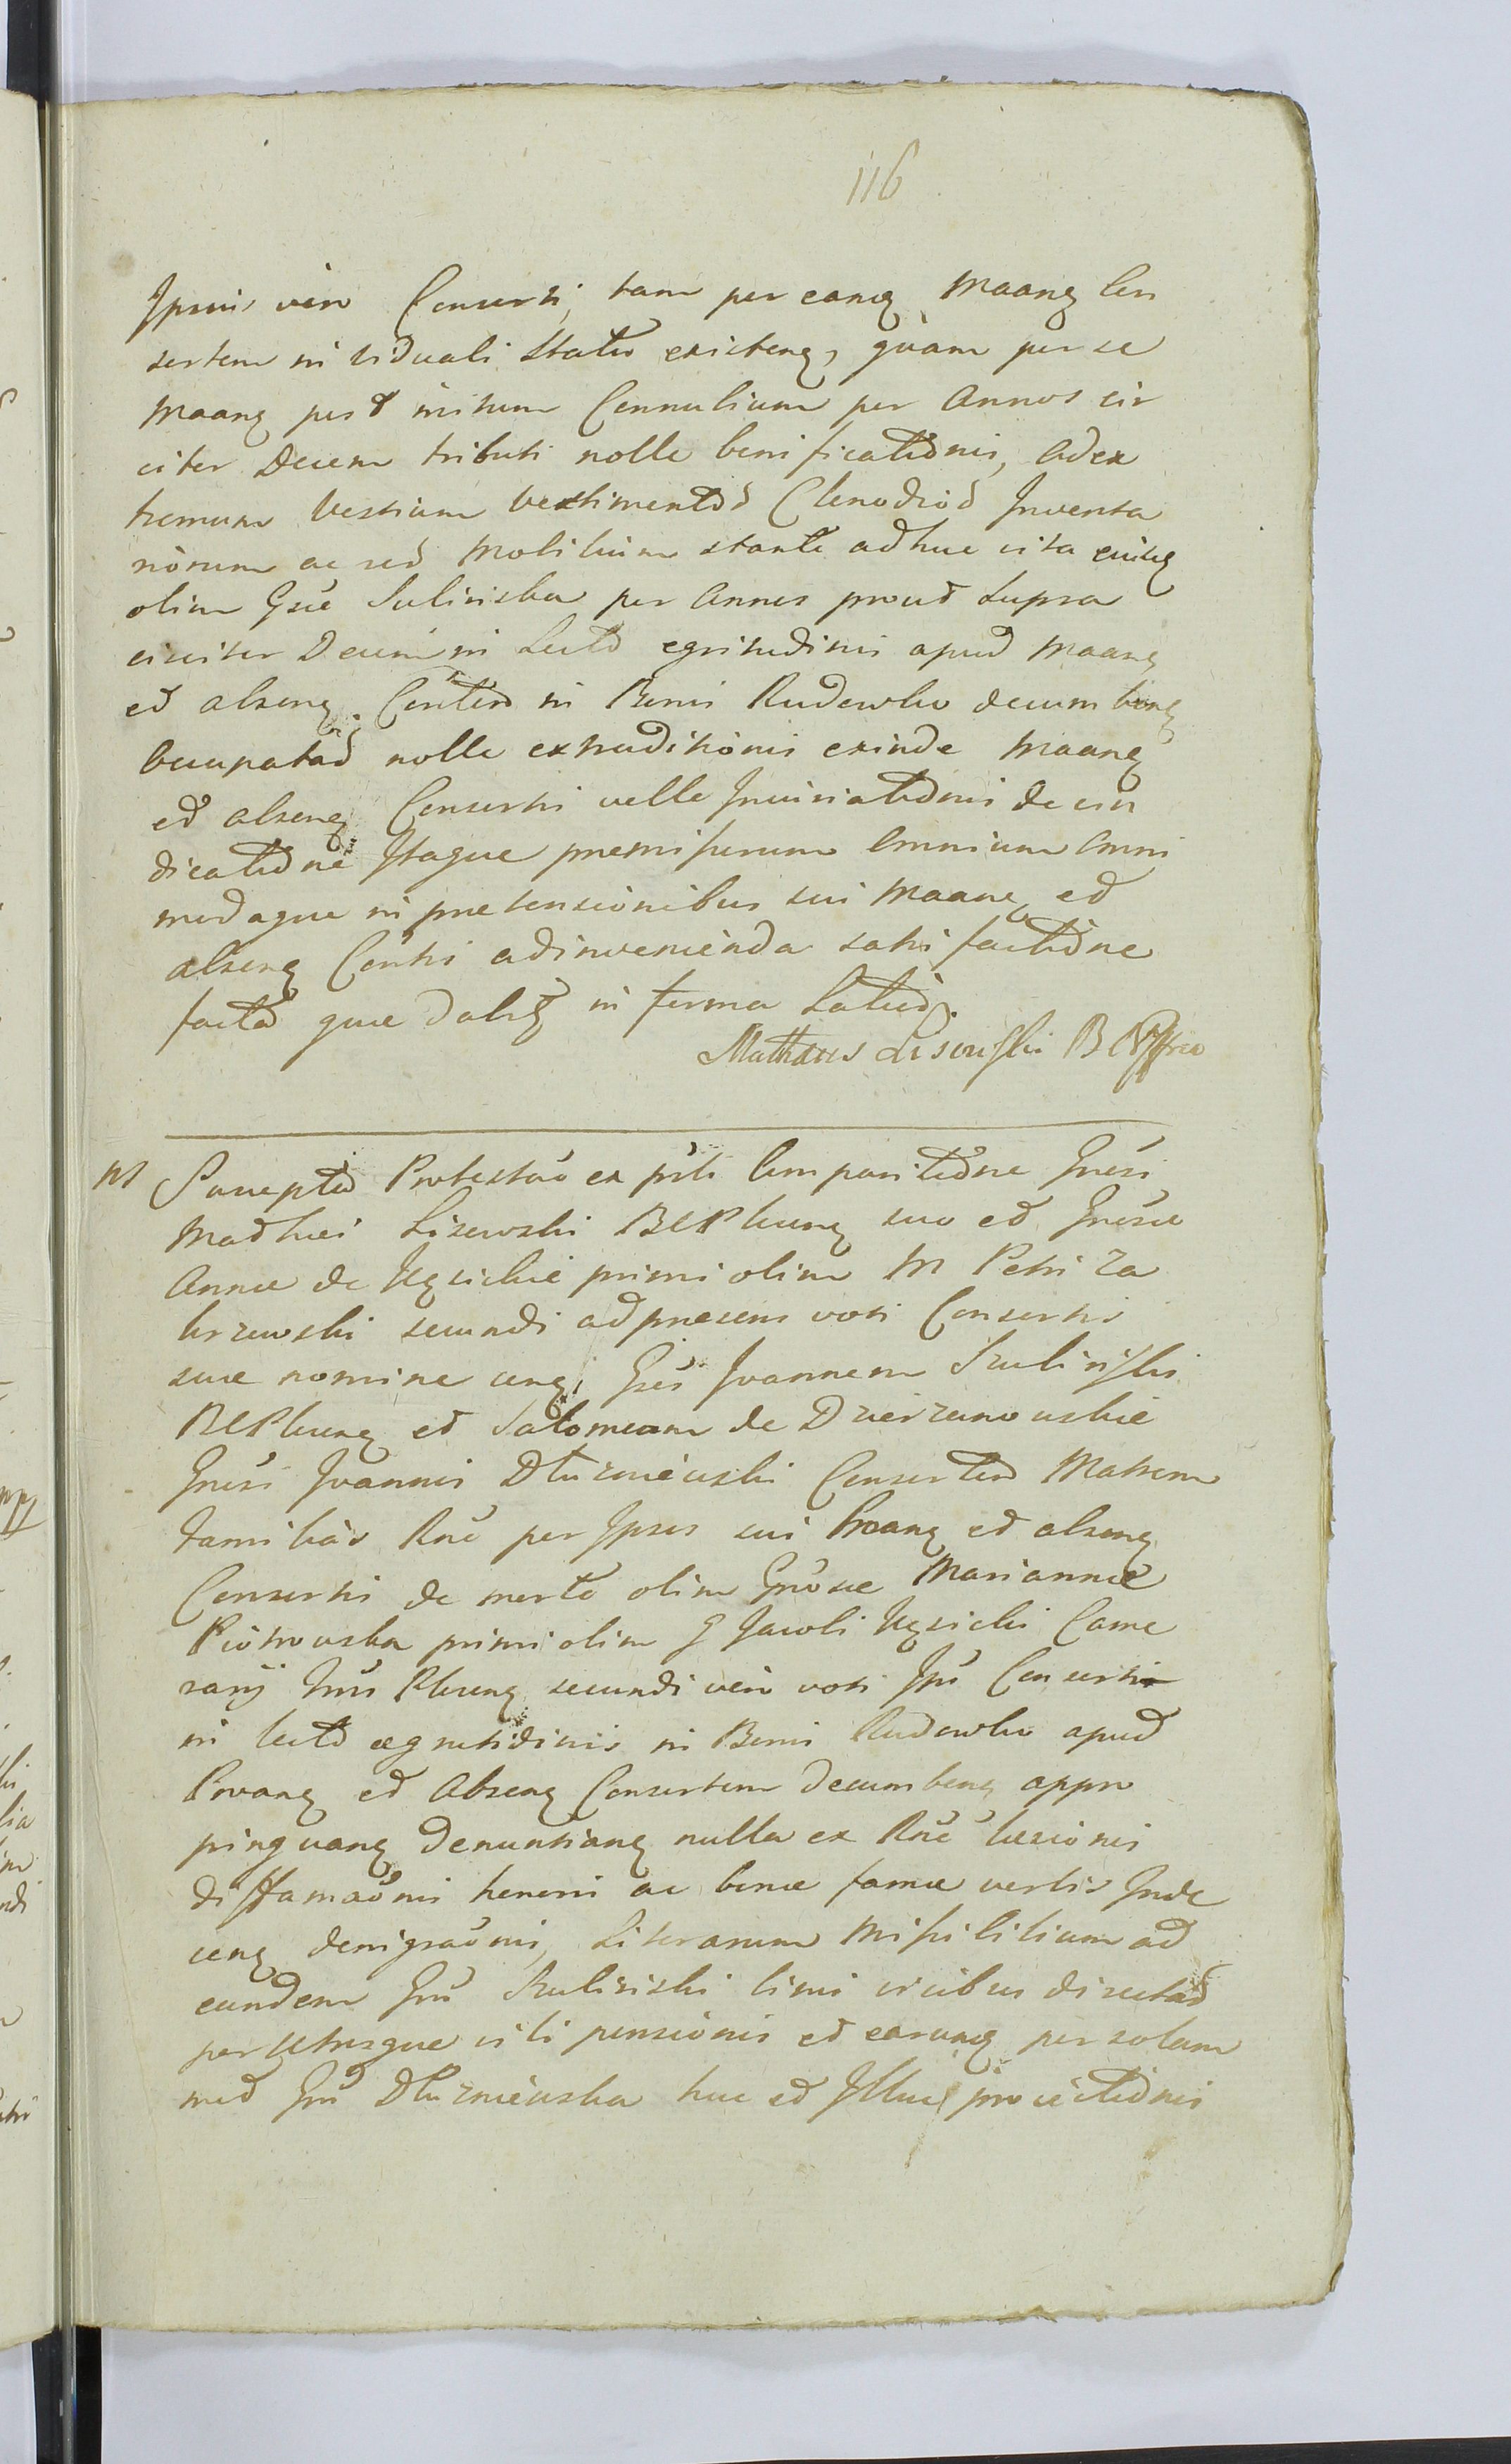 116
Ipsius vero Consorti, tam per eang Maang Con
sortem in viduali Statu existeng, quam per se
Maang post initum Connubium per Annos cir
citer Decem tributi nolle bonificationis, ad ex
tremum Vestium Vestimentor Clenodior Inventa
riorum ac red Mobilium stante adhuc vita eiusq
olim Gsae Sulinska per Annos prout Supra
circiter Decem in Lecto egritudinis apud Maang
et abseng. Contem in Bonis Rudowko decumbeng
Occupatar nolle extraditionis exinde Maang
et abseng Consorti velle Injuriationis de vin
dicatione Itaque premissorum Omnium Omni
modaque in pretensionibus sui Maang et
abseng Conti adinvenienda satisfactione
facta que dabit in forma Latiori.
Mathaeus Lisowski B
M Suscepta Protestao ex psti Comparitione Gnesi
Mathei Lisowski BCPlaung suo et Gnosae
Annae de Kęsickie primi olim M Petri Za
krzewski secundi ad praesens voti Consortis
suae nomine ceng Gses Joannem Szulinski
BCPlaung et Salomeam de Dzierzanowskie
Gnesi Joannis Dłuzniewski Consortem Matrem
Familias Rne per Ipsos sui Proang et abseng
Consorti de morte olim Gnosae Mariannae
Piotrowska primi olim G Jacobi Kęsicki Came
rarij Plaung secundi vero voti Ipsi Consortis
in lecto aegritudinis in Bonis Rudowko apud
Proang et Abseng Consortem Decumbeng appro
pinquang Denuntiang nulla ex Rne laesionis
diffamaonis honoris ac bonae famae verbis Inde
ceng denigraonis, Literarum Missilium ad
eundem Gnu Szulinski binis vicibus directar
per Utrosque vili pensionis et earung per solam
mod Gnu Dłuzniewska huc et Illuc proiectionis